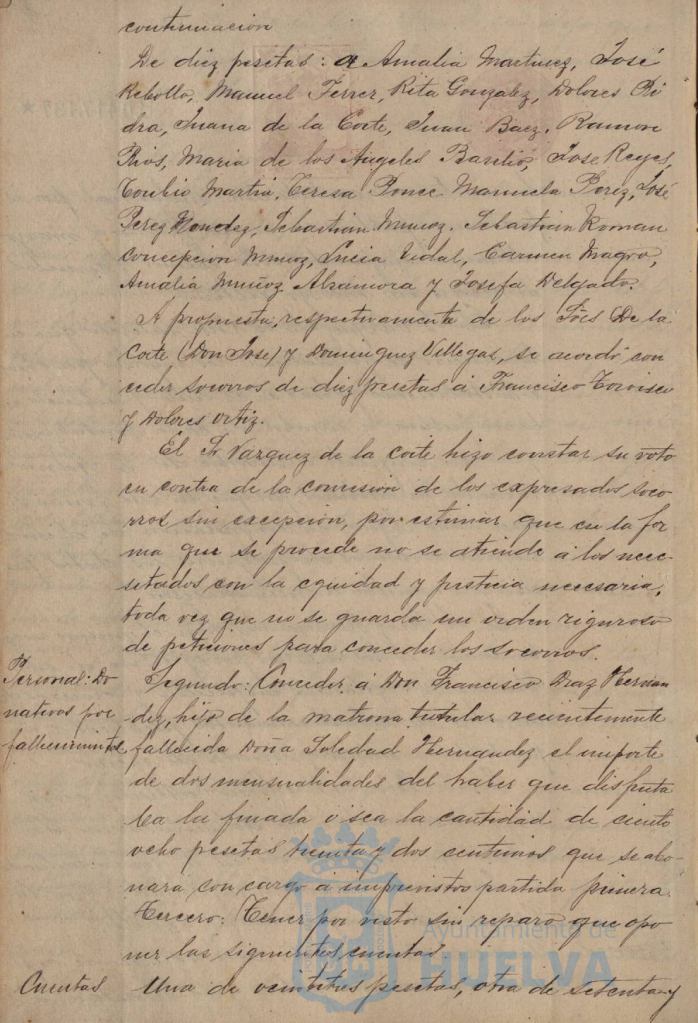 continuación
De diez pesetas: a Amalia Martinez, José
Rebollo, Manuel Ferrer, Rita Gonzalez, Dolores Pi
dra, Juana de la Corte, Juan Baez, Ramon
Rios, Maria de los Angeles Basilio, Jose Reyes,
Toribio Martin, Teresa Ponce Manuela Perez, José
Perez Mendez, Sebastián Munoz. Sebastián Roman
Concepcion Munoz, Lucia Vidal, Carmen Magro,
Amalia Muñoz Alzamora y Josefa Delgado.
A propuesta, respectivamente de los Sres De la
Corte (Don Jose) y Dominguez Villegas, se acordó con
ceder socorros de diez pesetas á Francisco
y Dolores Ortiz.
El Sr Vazquez de la Corte hizo constar su voto
en contra de la concesión de los expresados soco
rros sin excepción, por estimar que en la for
ma que se procede no se atiende á los nece
sitados con la equidad y justicia necesaria,
toda vez que no se guarda un orden riguroso
de peticiones para conceder los socorros.
Personal: Do
nativos por
fallecimiento
Segundo: Conceder á Don Francisco Diaz Hernan
dez, hijo de la matrona titular recientemente
fallecida Doña Soledad Hernandez el importe
de dos mensualidades del haber que disfruta
ba la finada o sea la cantidad de ciento
ocho pesetas treinta y dos centimos que se abo-
nara con cargo á imprevistos partida primera.
Tercero: Tener por visto sin reparo que opo
ner las siguientes cuentas
Cuentas
Una de veintitres pesetas, otra de setenta y
Ayuntamiento de
HUELVA